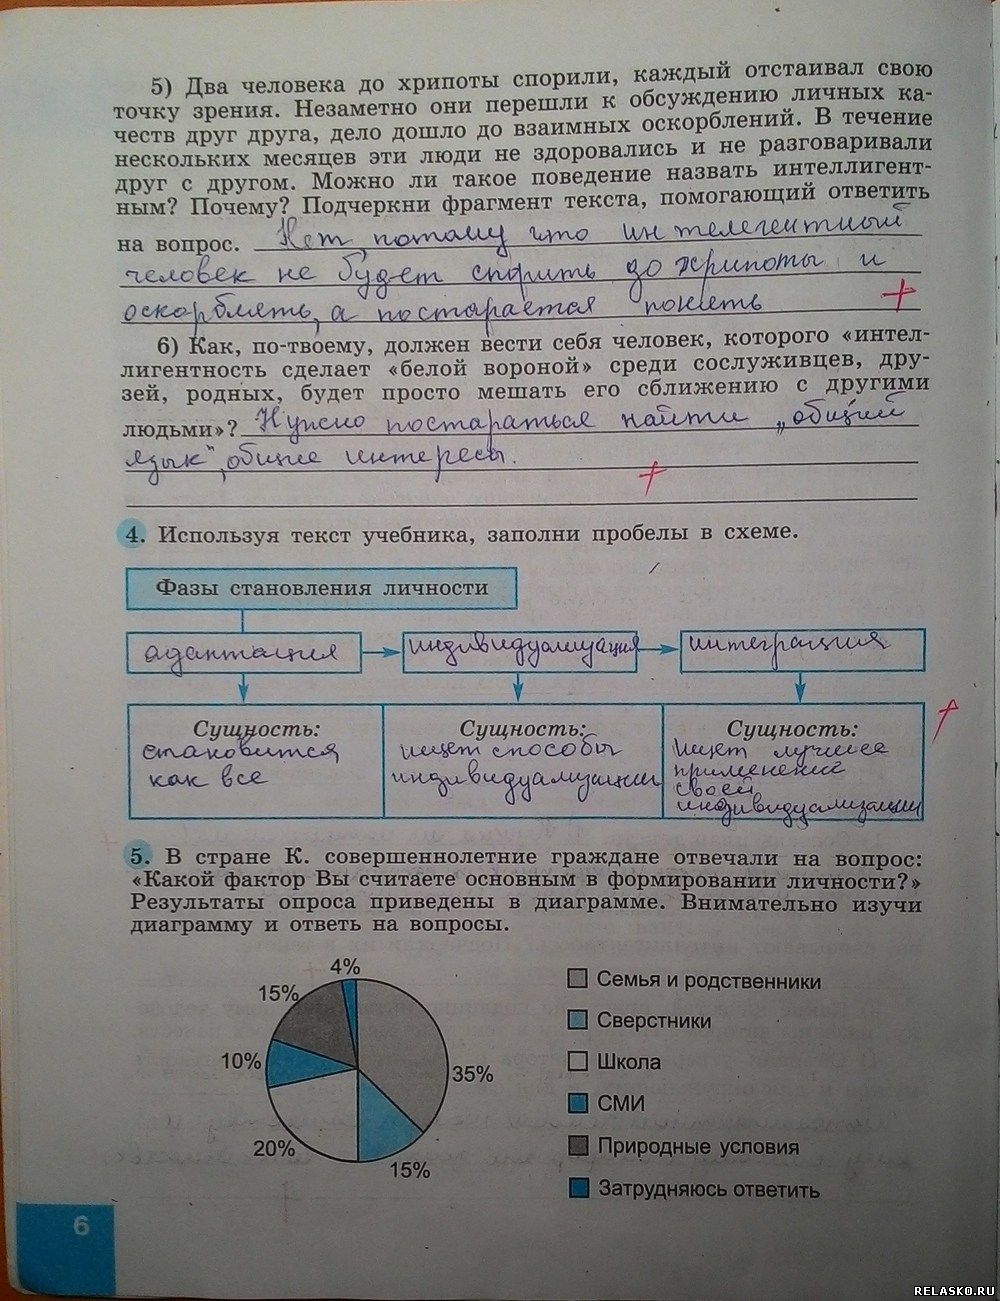 5) Два человека до хрипоты спорили, каждый отстаивал свою
точку зрения. Незаметно они перешли к обсуждению личных ка-
честв друг друга, дело дошло до взаимных оскорблений. В течение
нескольких месяцев эти люди не здоровались и не разговаривали
друг с другом. Можно ли такое поведение назвать интеллигент-
ным? Почему? Подчеркни фрагмент текста, помогающий ответить
на вопрос. Нет, потому что интелегентный
человек не будет спорить до хрипоты и
оскорблять, а постарается понять +
6) Как, по-твоему, должен вести себя человек, которого «интел-
лигентность сделает «белой вороной» среди сослуживцев, дру-
зей, родных, будет просто мешать его сближению с другими
людьми»? Нужно постараться найти „общий
язык", общие интересы. +
4. Используя текст учебника, заполни пробелы в схеме.
Фазы становления личности
адаптация
индивидуализация
интеграция
Сущность:
становится
как все
Сущность:
ищет способы
индивидуализации
Сущность:
ищет лучшее
применение
своей
индивидуализации
+
5. В стране К. совершеннолетние граждане отвечали на вопрос:
«Какой фактор Вы считаете основным в формировании личности?»
Результаты опроса приведены в диаграмме. Внимательно изучи
диаграмму и ответь на вопросы.
4%
15%
10%
20%
15%
35%
Семья и родственники
Сверстники
Школа
СМИ
Природные условия
Затрудняюсь ответить
6
RELASKO.RU